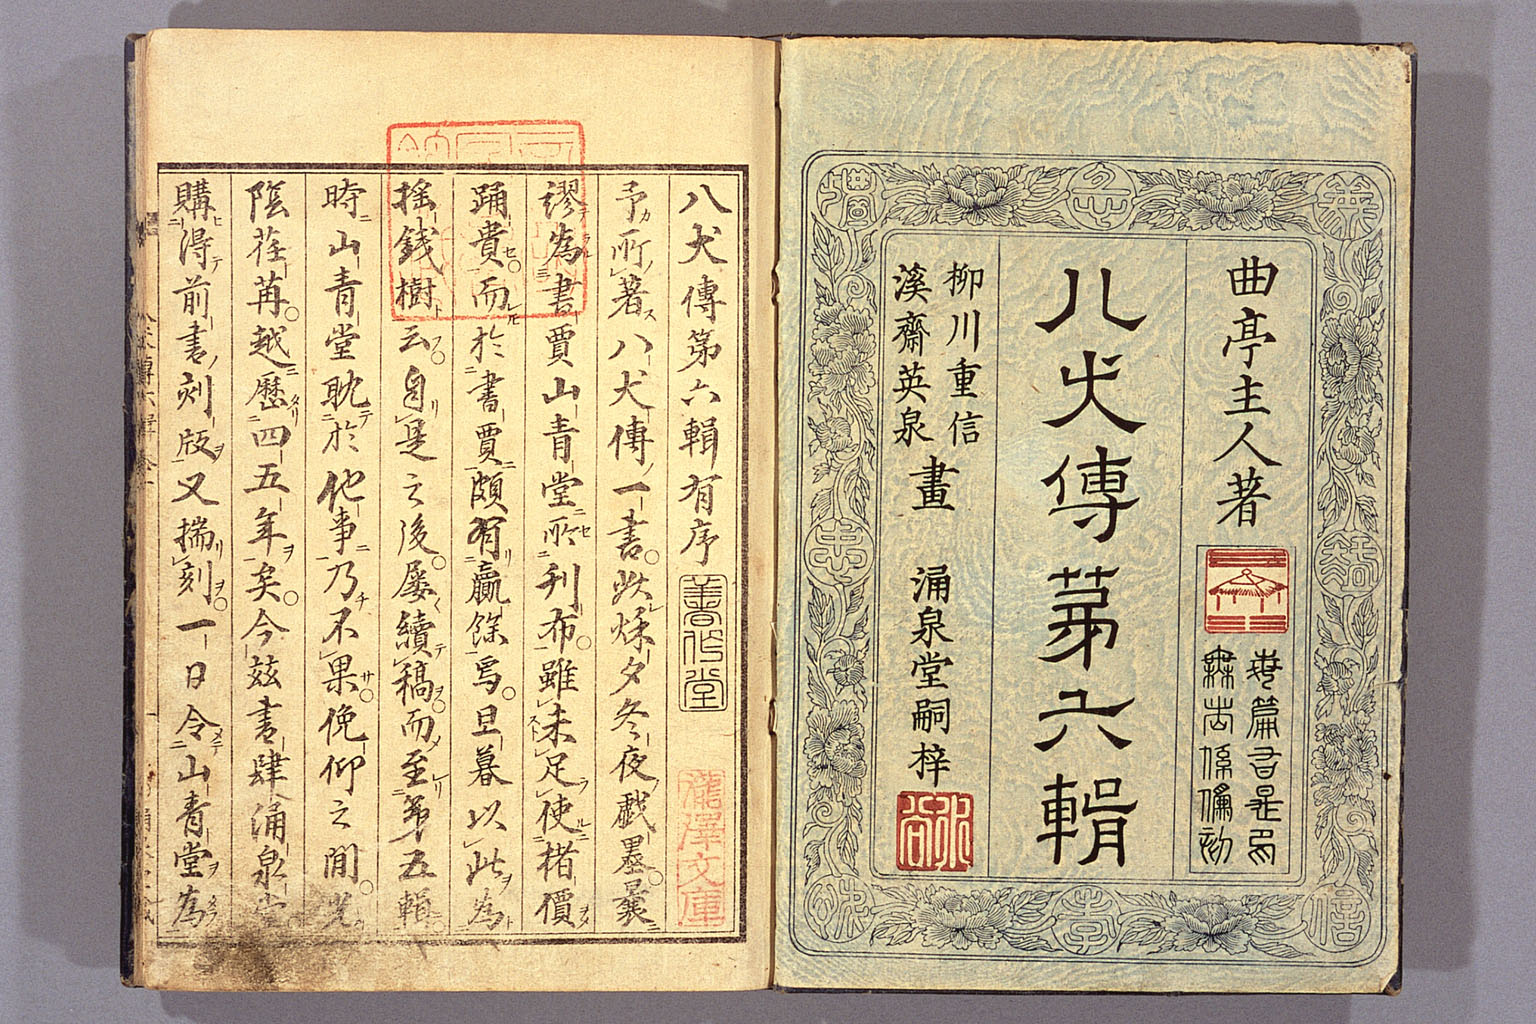 曲亭主人著
八犬傳第六輯
柳川重信
溪齋英泉
畫
涌泉堂嗣梓
仁
義
禮
智
忠
信
孝
悌
八犬傳第六輯有序
瀧澤文庫
予所著八犬傳一書。此烁夕冬夜戲墨曩
謬為書賈山青堂所刊布。雖未足使楮價
踊貴。而於書賈頗有贏餘焉。旦暮以此為
搖錢樹云。自是之後。屡續稿而至第五輯。
時山青堂耽於他事乃不果。俛仰之間。光
陰荏苒。越歷四五年矣。今茲書肆涌泉堂
購得前書刻版又揣刻。一日令山青堂為